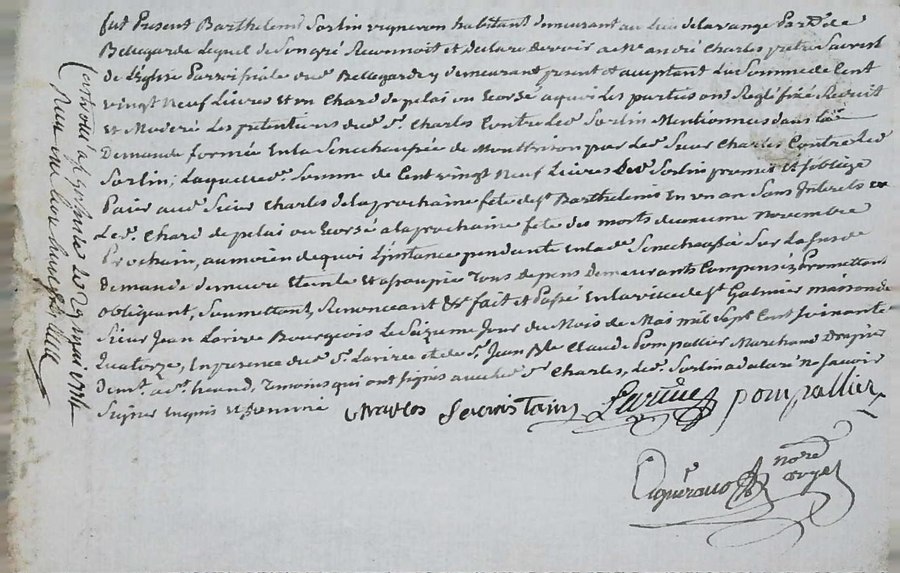 fut Present Barthelemi Sorlin vigneron habitant demeurant au lieu de la vange Parsse de
Bellegarde Lequel de Son gré Reconnoit et declare devoir a Me andré Charles pretre Sacrist
de L'eglise Parroissiale dud. Bellegarde y demeurant present et acceptant La Somme de Cent
vingt Neuf Livres et un Chard de pelai ou Ecorsé a quoi Les parties ont Reglé fixé Reduit
et Moderé Les pretentions dud. Sr. Charles Contre Led. Sorlin Mentionnees dans la
Demande formée En la Senechaussée de Montbrison par Led. Sieur Charles Contre Led.
Sorlin; Laquelle d. Somme de Cent vingt Neuf Livres Led. Sorlin promet et s'oblige
Paier aud. Sieur Charles de la prochaine fete de St. Barthelemis En un an Sans Interets et
Led. Chard de pelai ou Ecorsé a la prochaine fete des morts du comme. Novembre
Prochain, au moien de quoi L'instance pendante En lad. Senechaussée Sur la susd.
demande demeure eteinte et assoupie Tous depens Demeurants Compensés Promettant
obligeant, Soumettant, Renonceant &c fait et Passé En la ville de St. Galmier maison de
Sieur Jean Larive Bourgeois Le Seizieme Jour du Mois de Mai mil Sept Cent Soixante
Quatorze, En presence dud. Sr. Larive et de Sr. Jean Claude Pompallier Marchand
demt. aSt. heand, Temoins qui ont signés avec led. Sr. Charles, Led. Sorlin a declaré ne savoir
Signer Enquis et Sommé
Charles Sacristain Larive pompallier
nore
Controllé a St galmier le 29 mai 1774
Reçu